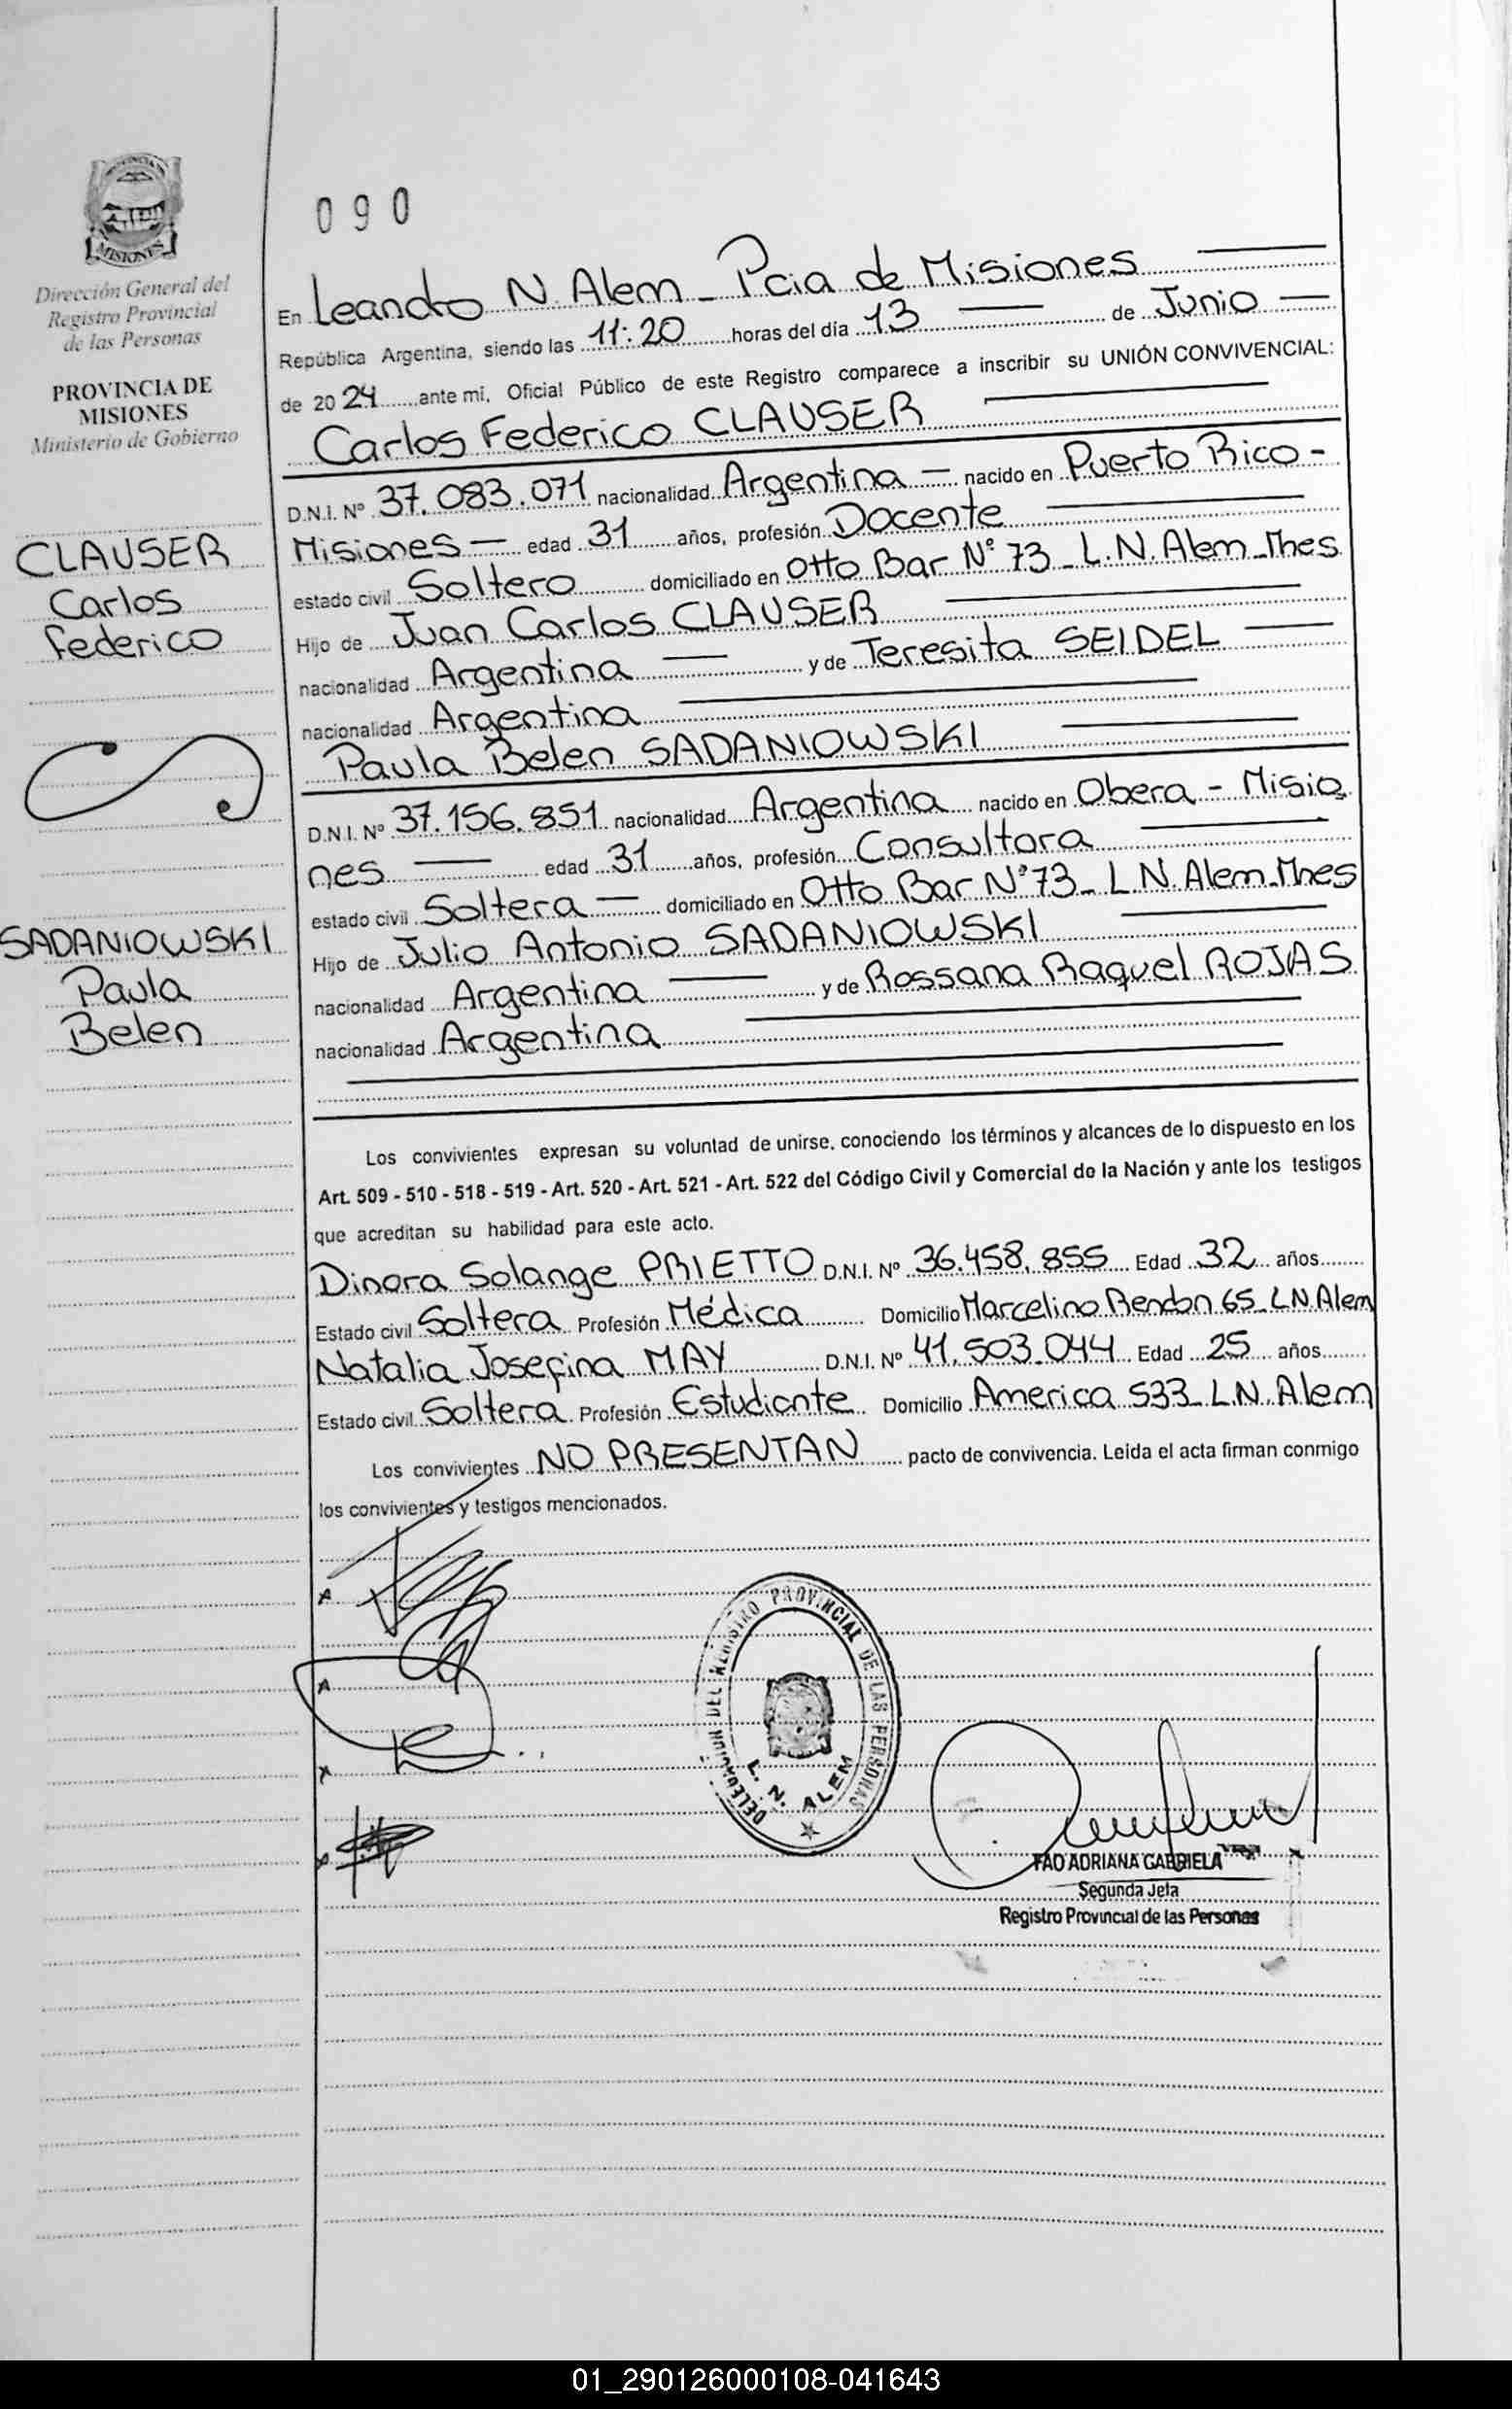 PROVINCIA DE
MISIONES
Dirección General del
Registro Provincial
de las Personas
PROVINCIA DE
MISIONES
Ministerio de Gobierno
CLAUSER
Carlos
Federico
SADANIOWSKI
Paula
Belen
090
En Leandro N. Alem - Pcia de Misiones
República Argentina, siendo las 11:20 horas del día 13 de Junio
de 2024 ante mi, Oficial Público de este Registro comparece a inscribir su UNIÓN CONVIVENCIAL:
Carlos Federico CLAUSER
D.N.I. Nº 37.083.071 nacionalidad Argentina - nacido en Puerto Rico -
Misiones - edad 31 años, profesión Docente
estado civil Soltero domiciliado en Otto Bar Nº 73 - L.N. Alem - Mnes
Hijo de Juan Carlos CLAUSER
nacionalidad Argentina y de Teresita SEIDEL
nacionalidad Argentina
Paula Belen SADANIOWSKI
D.N.I. Nº 37.156.851 nacionalidad Argentina nacido en Obera - Misio
nes edad 31 años, profesión Consultora
estado civil Soltera - domiciliado en Otto Bar Nº 73 - L N. Alem - Mnes
Hijo de Julio Antonio SADANIOWSKI
nacionalidad Argentina y de Rossana Raquel ROJAS
nacionalidad Argentina
Los convivientes expresan su voluntad de unirse, conociendo los términos y alcances de lo dispuesto en los
Art. 509 - 510 - 518 - 519 - Art. 520 - Art. 521 - Art. 522 del Código Civil y Comercial de la Nación y ante los testigos
que acreditan su habilidad para este acto.
Dinora Solange PRIETTO D.N.I. Nº 36.458.855 Edad 32 años
Estado civil Soltera Profesión Médica Domicilio Marcelino Rendon 65 - L N. Alem
Natalia Josefina MAY D.N.I. Nº 41.503.044 Edad 25 años
Estado civil Soltera Profesión Estudiante Domicilio America 533 - L.N. Alem
Los convivientes NO PRESENTAN pacto de convivencia. Leída el acta firman conmigo
los convivientes y testigos mencionados.
DELEGACION DEL REGISTRO PROVINCIAL DE LAS PERSONAS
L. N. ALEM
FAO ADRIANA GABRIELA
Segunda Jefa
Registro Provincial de las Personas
01_290126000108-041643